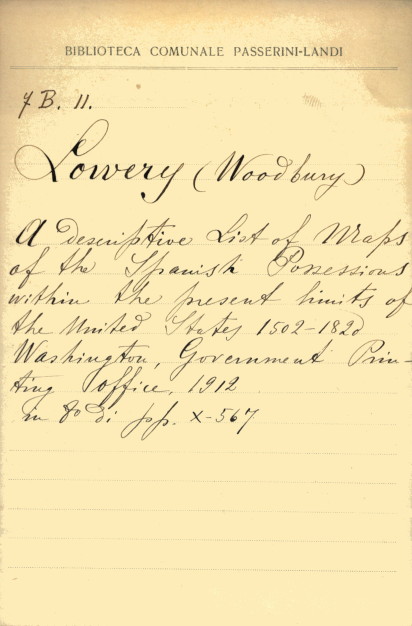 BIBLIOTECA COMUNALE PASSERINI-LANDI
7 B. 11.
Lowery (Woodbury)
A descriptive List of Maps
of the Spanish Possessions
within the present limits of
the United States 1502-1820
Washington, Government Prin-
ting Office, 1912
in 8º di pp. X-567